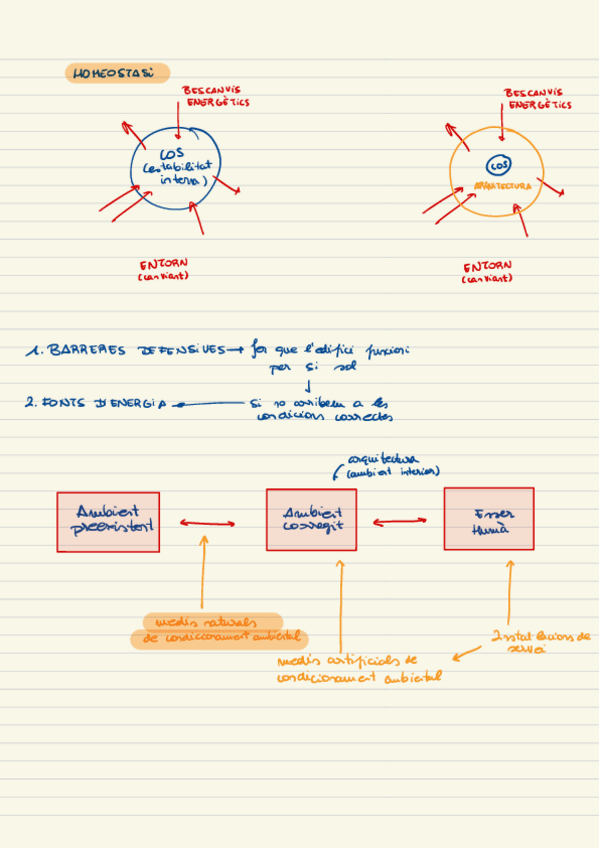 HOMEOSTASI
BESCANVIS
ENERGÈTICS
COS
(estabilitat
interna)
ENTORN
(canviant)
BESCANVIS
ENERGÈTICS
COS
ARQUITECTURA
ENTORN
(canviant)
1. BARRERES DEFENSIVES → fer que l'edifici funcioni
per si sol
2. FONTS D'ENERGIA ← si no arribem a les
condicions correctes
arquitectura
(ambient interior)
Ambient
preexistent
Ambient
corregit
Esser
Humà
medis naturals
de condicionament ambiental
medis artificials de
condicionament ambiental
Instal·lacions de
servei